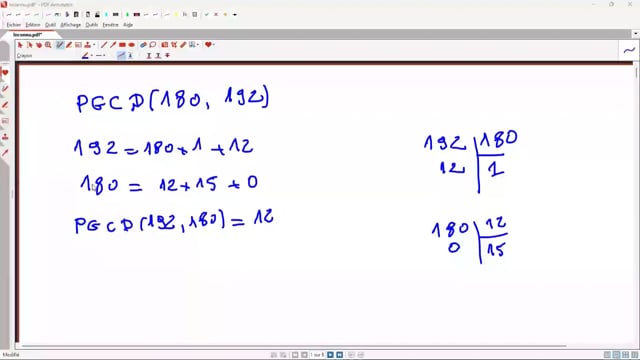 Inconnu.pdf* - PDF Annotator
Fichier Edition Edit Affichage Outils Fenetre Aide
Inconnu.pdf*
Crayon
PGCD(180, 192)
192 = 180 × 1 + 12
180 = 12 × 15 + 0
PGCD(192, 180) = 12
192 180
12 1
180 12
0 15
Modifié
1 sur 8